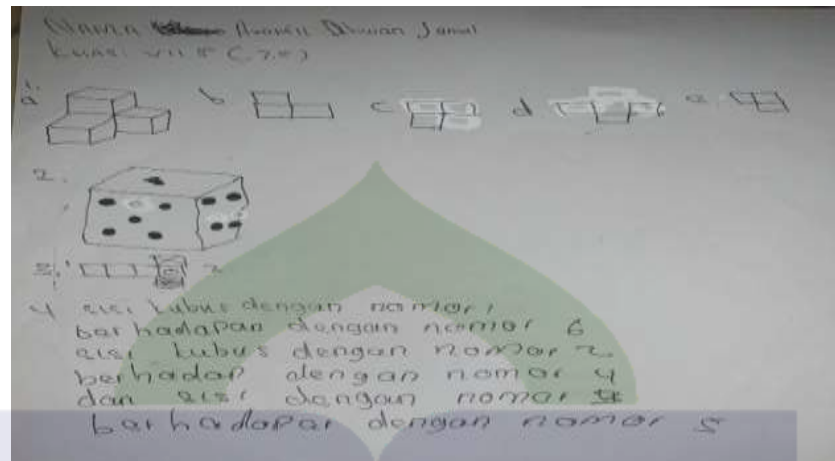 Nama Diwan Jamil
Kelas: VII 5 (7.5)
1.
a b c d e
2.
3. 1 2
4 sisi kubus dengan nomor 1
berhadapan dengan nomor 6
sisi kubus dengan nomor 2
berhadap dengan nomor 4
dan sisi dengan nomor
berhadapan dengan nomor 5